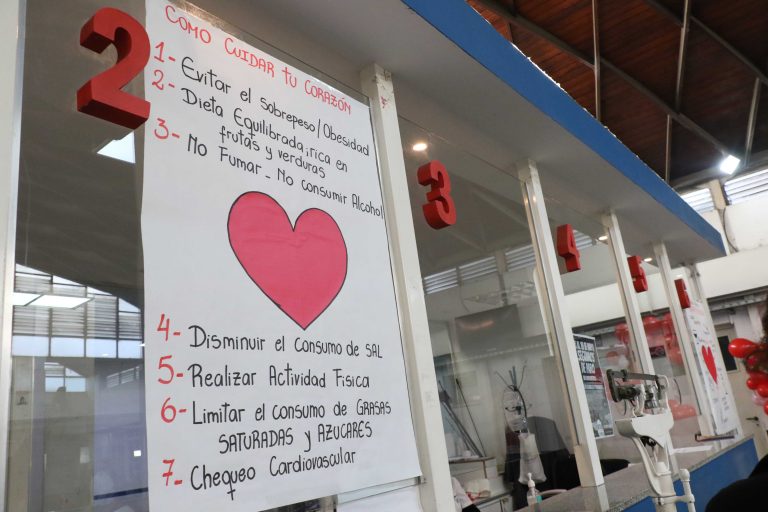 2
COMO CUIDAR TU CORAZÓN
1- Evitar el sobrepeso/Obesidad
2- Dieta Equilibrada, rica en
frutas y verduras
3- No Fumar - No consumir Alcohol
4- Disminuir el consumo de SAL
5- Realizar Actividad Física
6- Limitar el consumo de GRASAS
SATURADAS y AZUCARES
7- Chequeo Cardiovascular
3
4
5